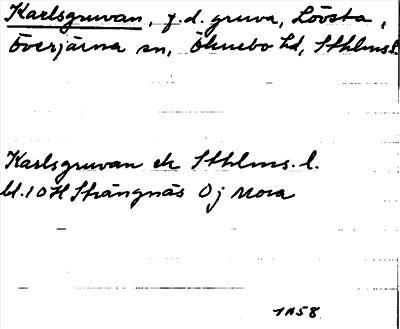 Karlsgruvan, f.d. gruva, Lövsta,
Överjärna sn, Öknebo hd, Sthlms l.
Karlsgruvan ek Sthlms. l.
bl. 10 H Strängnäs 0j Mora
1958